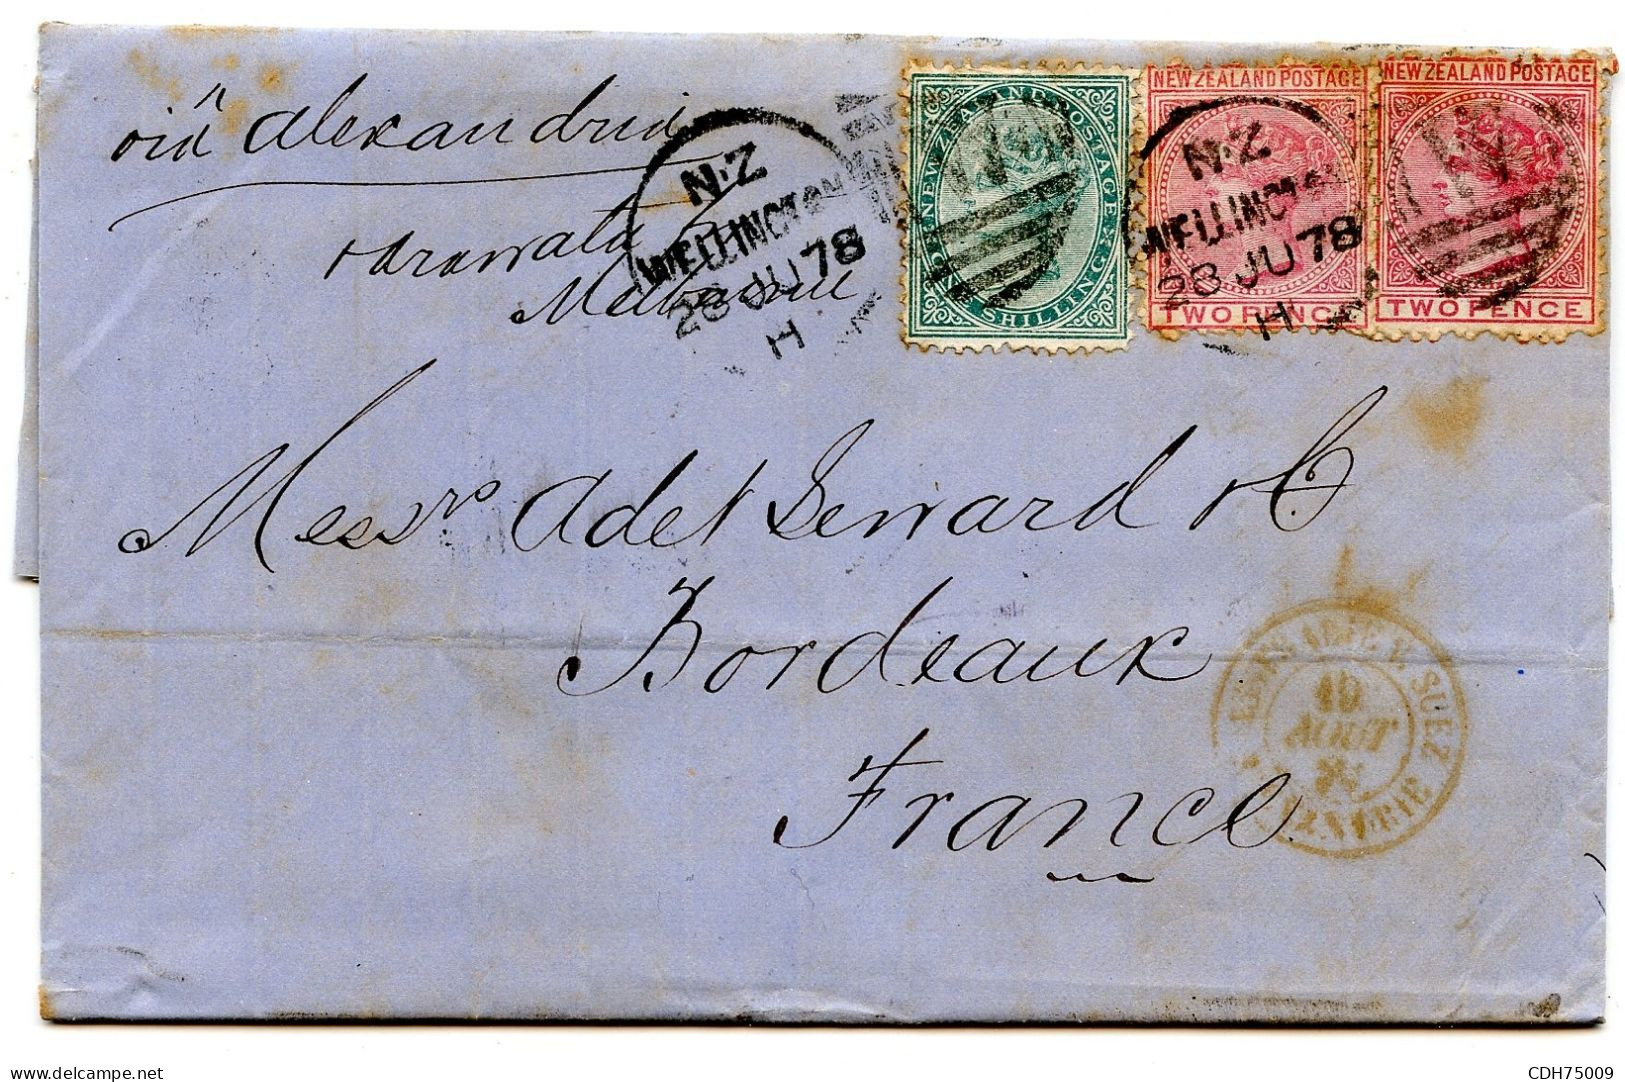 via Alexandria
Melbourne
N.Z
WELLINGTON
28 JU 78
H
NEW ZEALAND POSTAGE
SHILLING
NEW ZEALAND POSTAGE
TWO PENCE
N.Z
WELLINGTON
28 JU 78
H
NEW ZEALAND POSTAGE
TWO PENCE
NZ
Messrs Adet Seward & Co
Bordeaux
France
SUEZ
19
AOUT
delcampe.net
CDH75009